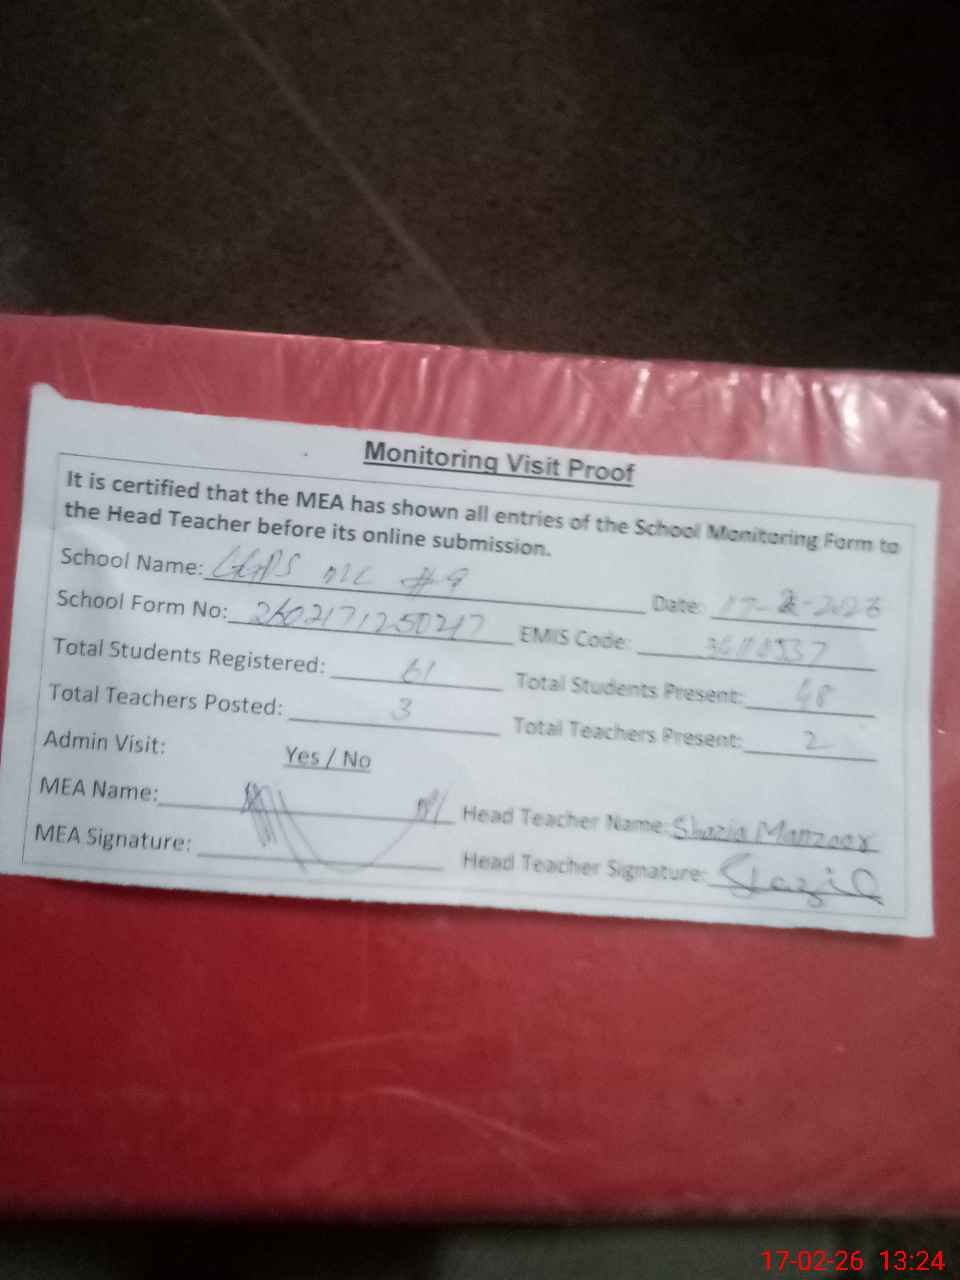 Monitoring Visit Proof
It is certified that the MEA has shown all entries of the School Monitoring Form to
the Head Teacher before its online submission.
School Name: GGPS MC #9 Date: 17-2-2026
School Form No: 2602171250217 EMIS Code:
Total Students Registered: 61 Total Students Present: 48
Total Teachers Posted: 3 Total Teachers Present: 2
Admin Visit: Yes / No
MEA Name: Head Teacher Name: Shazia Manzoor
MEA Signature: Head Teacher Signature: Shazia
17-02-26 13:24